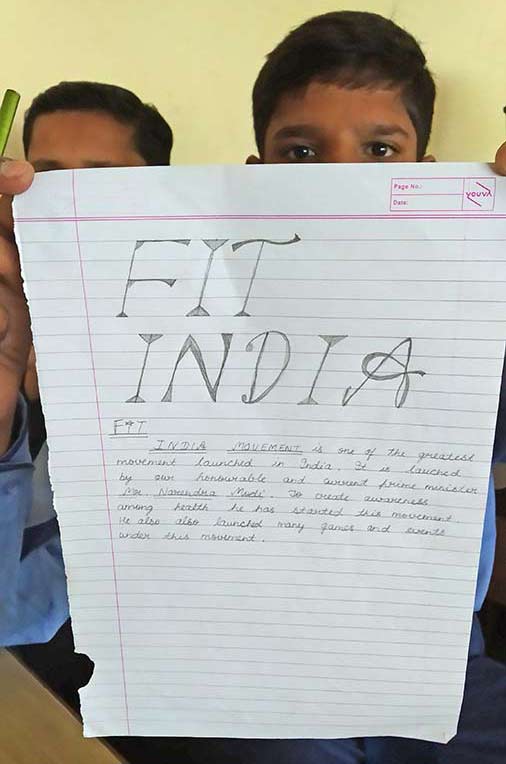 Page No.:
Date:
YOUVA
FIT
INDIA
FIT
INDIA MOVEMENT is one of the greatest
movement launched in India. It is lauched
by our honourable and current prime minister
Mr. Narendra Modi. To create awareness
among health he has started this movement.
He also also launched many games and events
under this movement.